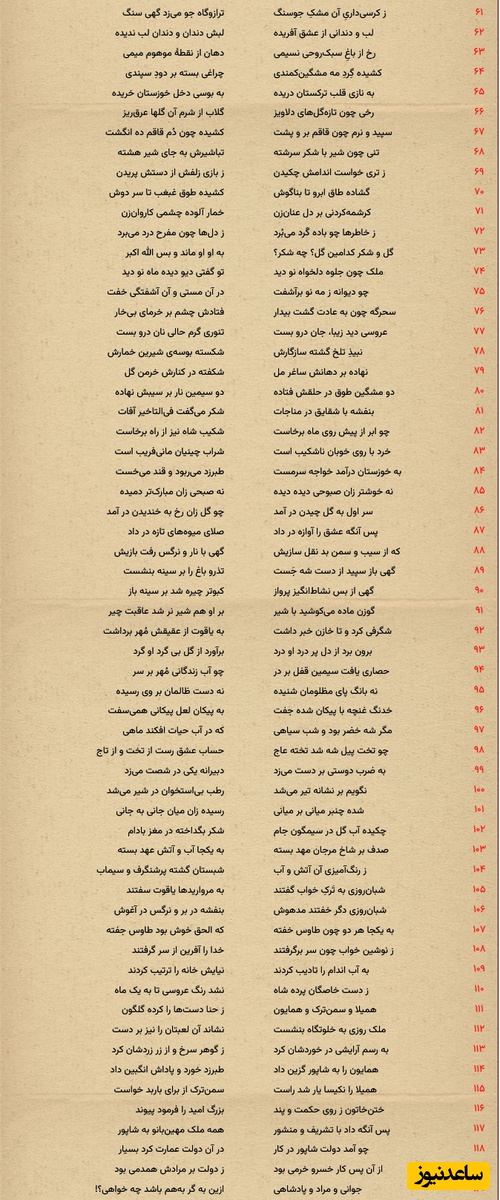 ۶۱ ز کرسی‌داریِ آن مشکِ جوسنگ ترازوگاه جو می‌زد گهی سنگ
۶۲ لب و دندانی از عشق آفریده لبش دندان و دندان لب ندیده
۶۳ رخ از باغِ سبک‌روحی نسیمی دهان از نقطهٔ موهوم میمی
۶۴ کشیده گِردِ مه مشگین‌کمندی چراغی بسته بر دودِ سپندی
۶۵ به نازی قلب ترکستان دریده به بوسی دخل خوزستان خریده
۶۶ رخی چون تازه‌گل‌های دلاویز گلاب از شرم آن گلها عرق‌ریز
۶۷ سپید و نرم چون قاقم بر و پشت کشیده چون دُم قاقم ده انگشت
۶۸ تنی چون شیر با شکر سرشته تباشیرش به جای شیر هشته
۶۹ ز تری خواست اندامش چکیدن ز بازی زلفش از دستش پریدن
۷۰ گشاده طاق ابرو تا بناگوش کشیده طوق غبغب تا سر دوش
۷۱ کرشمه‌کردنی بر دل عنان‌زن خمار آلوده چشمی کاروان‌زن
۷۲ ز خاطرها چو باده گرد می‌بُرد ز دل‌ها چون مفرح درد می‌برد
۷۳ گل و شکر کدامین گل؟ چه شکر؟ به او او ماند و بس الله اکبر
۷۴ ملک چون جلوه دلخواه نو دید تو گفتی دیو دیده ماه نو دید
۷۵ چو دیوانه ز مه نو برآشفت در آن مستی و آن آشفتگی خفت
۷۶ سحرگه چون به عادت گشت بیدار فتادش چشم بر خرمای بی‌خار
۷۷ عروسی دید زیبا، جان درو بست تنوری گرم حالی نان درو بست
۷۸ نبیذِ تلخ گشته سازگارش شکسته بوسه‌ی شیرین خمارش
۷۹ نهاده بر دهانش ساغر مل شکفته در کنارش خرمن گل
۸۰ دو مشگین طوق در حلقش فتاده دو سیمین نار بر سیبش نهاده
۸۱ بنفشه با شقایق در مناجات شکر می‌گفت فی‌التاخیر آفات
۸۲ چو ابر از پیش روی ماه برخاست شکیب شاه نیز از راه برخاست
۸۳ خرد با روی خوبان ناشکیب است شراب چینیان مانی‌فریب است
۸۴ به خوزستان درآمد خواجه سرمست طبرزد می‌ربود و قند می‌خست
۸۵ نه خوشتر زان صبوحی دیده دیده نه صبحی زان مبارک‌تر دمیده
۸۶ سر اول به گل چیدن در آمد چو گل زان رخ به خندیدن در آمد
۸۷ پس آنگه عشق را آوازه در داد صلای میوه‌های تازه در داد
۸۸ که از سیب و سمن بد نقل سازیش گهی با نار و نرگس رفت بازیش
۸۹ گهی باز سپید از دست شه جَست تذرو باغ را بر سینه بنشست
۹۰ گهی از بس نشاط‌انگیز پرواز کبوتر چیره شد بر سینه باز
۹۱ گوزن ماده می‌کوشید با شیر بر او هم شیر نر شد عاقبت چیر
۹۲ شگرفی کرد و تا خازن خبر داشت به یاقوت از عقیقش مُهر برداشت
۹۳ برون برد از دل پر درد او درد برآورد از گل بی گرد او گرد
۹۴ حصاری یافت سیمین قفل بر در چو آب زندگانی مُهر بر سر
۹۵ نه بانگ پای مظلومان شنیده نه دست ظالمان بر وی رسیده
۹۶ خدنگ غنچه با پیکان شده جفت به پیکان لعل پیکانی همی‌سفت
۹۷ مگر شه خضر بود و شب سیاهی که در آب حیات افکند ماهی
۹۸ چو تخت پیل شه شد تخته عاج حساب عشق رست از تخت و از تاج
۹۹ به ضرب دوستی بر دست می‌زد دبیرانه یکی در شصت می‌زد
۱۰۰ نگویم بر نشانه تیر می‌شد رطب بی‌استخوان در شیر می‌شد
۱۰۱ شده چنبر میانی بر میانی رسیده زان میان جانی به جانی
۱۰۲ چکیده آب گل در سیمگون جام شکر بگداخته در مغز بادام
۱۰۳ صدف بر شاخ مرجان مهد بسته به یکجا آب و آتش عهد بسته
۱۰۴ ز رنگ‌آمیزی آن آتش و آب شبستان گشته پرشنگرف و سیماب
۱۰۵ شبان‌روزی به تَرک خواب گفتند به مرواریدها یاقوت سفتند
۱۰۶ شبان‌روزی دگر خفتند مدهوش بنفشه در بر و نرگس در آغوش
۱۰۷ به یکجا هر دو چون طاوس خفته که الحق خوش بود طاوس جفته
۱۰۸ ز نوشین خواب چون سر برگرفتند خدا را آفرین از سر گرفتند
۱۰۹ به آب اندام را تادیب کردند نیایش خانه را ترتیب کردند
۱۱۰ ز دست خاصگان پرده شاه نشد رنگ عروسی تا به یک ماه
۱۱۱ همیلا و سمن‌ترک و همایون ز حنا دست‌ها را کرده گلگون
۱۱۲ ملک روزی به خلوتگاه بنشست نشاند آن لعبتان را نیز بر دست
۱۱۳ به رسم آرایشی در خوردشان کرد ز گوهر سرخ و از زر زردشان کرد
۱۱۴ همایون را به شاپور گزین داد طبرزد خورد و پاداش انگبین داد
۱۱۵ همیلا را نکیسا یار شد راست سمن‌ترک از برای باربد خواست
۱۱۶ ختن‌خاتون ز روی حکمت و پند بزرگ امید را فرمود پیوند
۱۱۷ پس آنگه داد با تشریف و منشور همه ملک مهین‌بانو به شاپور
۱۱۸ چو آمد دولت شاپور در کار در آن دولت عمارت کرد بسیار
از آن پس کار خسرو خرمی بود ز دولت بر مرادش همدمی بود
جوانی و مراد و پادشاهی ازین به گر به‌هم باشد چه خواهی؟!
ساعدنیوز